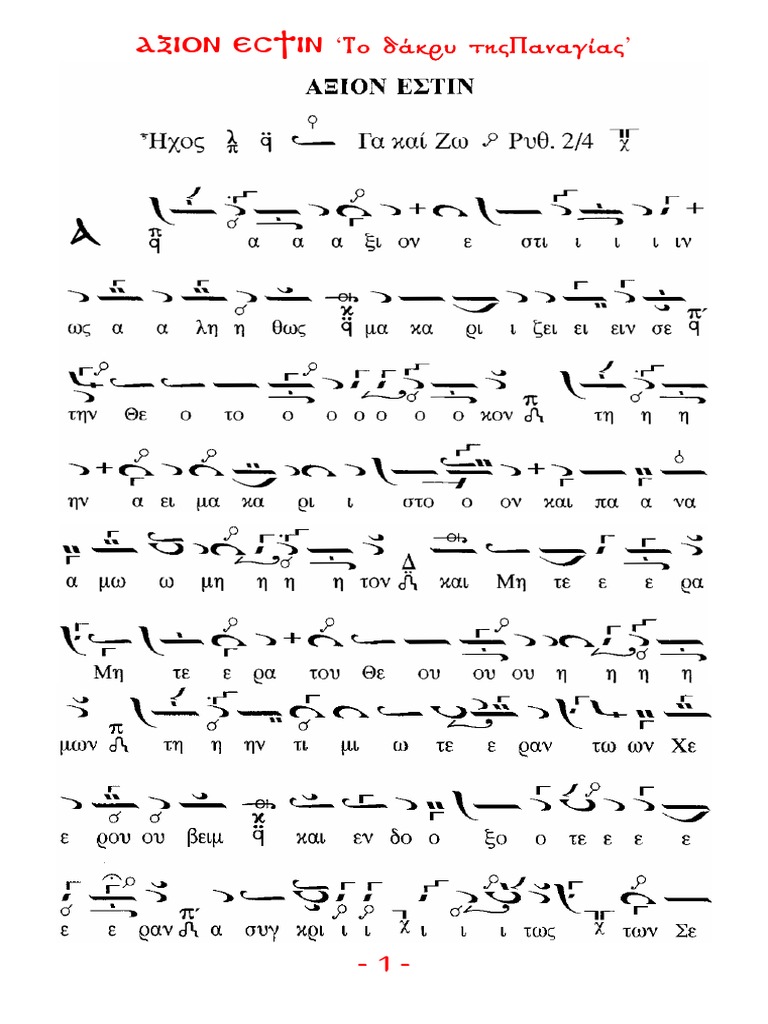 ΑΞΙΟΝ ΕΣΤΙΝ ‘Το δάκρυ τηςΠαναγίας’
ΑΞΙΟΝ ΕΣΤΙΝ
Ἦχος λ π q Γα καί Ζω Ρυθ. 2/4 χ
Α π q α α α ξι ον ε στι ι ι ι ιν
ως α α λη η θως κ q μα κα ρι ι ζει ει ειν σε π΄ q
την Θε ο το ο ο ο ο ο ο κον π τη η η
ην α ει μα κα ρι ι στο ο ον και πα α να
α μω ω μη η η η τον Δ και Μη τε ε ε ρα
Μη τε ε ρα του Θε ου ου ου η η η η
μων π τη η ην τι μι ω τε ε ραν τω ων Χε
ε ρου ου βειμ κ q και εν δο ο ξο ο τε ε ε ε
ε ε ραν π΄ α συγ κρι ι ι χ ι ι ι τως χ των Σε
- 1 -